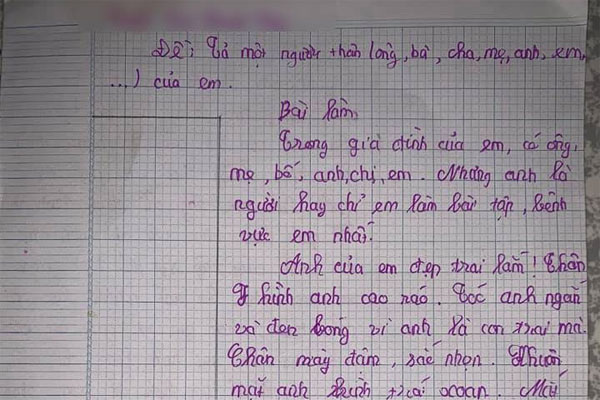 Đề: Tả một người thân (ông, bà, cha, mẹ, anh, em,
...) của em.
Bài làm
Trong gia đình của em, có ông,
mẹ, bố, anh, chị, em. Nhưng anh là
người hay chỉ em làm bài tập, bênh
vực em nhất.
Anh của em đẹp trai lắm! Thân
hình anh cao ráo. Tóc anh ngắn
và đen bóng vì anh là con trai mà.
Chân mày đậm, sắc nhọn. Khuôn
mặt anh hình trái xoan.